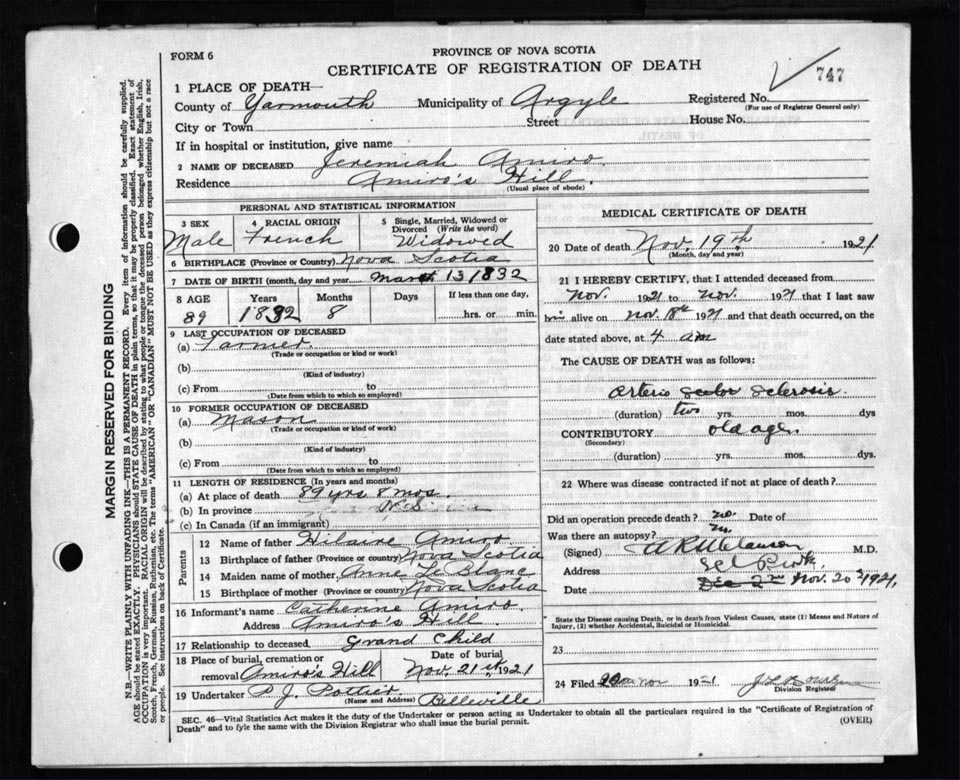 FORM 6
PROVINCE OF NOVA SCOTIA
CERTIFICATE OF REGISTRATION OF DEATH
747
1 PLACE OF DEATH—
County of Yarmouth Municipality of Argyle Registered No.
(For use of Registrar General only)
City or Town Street House No.
If in hospital or institution, give name
2 NAME OF DECEASED Jeremiah Amiro
Residence Amiro's Hill.
(Usual place of abode)
PERSONAL AND STATISTICAL INFORMATION
3 SEX 4 RACIAL ORIGIN 5 Single, Married, Widowed or Divorced (Write the word)
Male French Widowed
6 BIRTHPLACE (Province or Country) Nova Scotia
7 DATE OF BIRTH (month, day and year) March 13 1832
8 AGE Years Months Days If less than one day,
89 1832 8 hrs. or min.
9 LAST OCCUPATION OF DECEASED
(a) Farmer.
(Trade or occupation or kind of work)
(b)
(Kind of industry)
(c) From to
(Date from which to which so employed)
10 FORMER OCCUPATION OF DECEASED
(a) Mason
(Trade or occupation or kind of work)
(b)
(Kind of industry)
(c) From to
(Date from which to which so employed)
11 LENGTH OF RESIDENCE (In years and months)
(a) At place of death 89 yrs 8 mos.
(b) In province N.S
(c) In Canada (if an immigrant)
Parents
12 Name of father Hilaire Amiro
13 Birthplace of father (Province or country) Nova Scotia
14 Maiden name of mother Anne Le Blanc
15 Birthplace of mother (Province or country) Nova Scotia
16 Informant's name Catherine Amiro.
Address Amiro's Hill.
17 Relationship to deceased Grand Child
18 Place of burial, cremation or removal Amiro's Hill Date of burial Nov. 21 st, 1921
19 Undertaker P J. Pottier Belleville
(Name and Address)
MEDICAL CERTIFICATE OF DEATH
20 Date of death Nov. 19th 1921
(Month, day and year)
21 I HEREBY CERTIFY, that I attended deceased from
Nov. 1921 to Nov. 1921 that I last saw
him alive on Nov. 18th 1921 and that death occurred, on the
date stated above, at 4 am
The CAUSE OF DEATH was as follows:
Arterio Sclerosis.
(duration) two yrs. mos. dys
CONTRIBUTORY old age
(Secondary)
(duration) yrs. mos. dys.
22 Where was disease contracted if not at place of death?
Did an operation precede death? no. Date of
Was there an autopsy? no.
(Signed) M.D.
Address
Date Nov. 20th 1921.
State the Disease causing Death, or in death from Violent Causes, state (1) Means and Nature of Injury, (2) whether Accidental, Suicidal or Homicidal.
23
24 Filed Nov 1921
Division Registrar
SEC. 46—Vital Statistics Act makes it the duty of the Undertaker or person acting as Undertaker to obtain all the particulars required in the "Certificate of Registration of
Death" and to fyle the same with the Division Registrar who shall issue the burial permit. (OVER)
MARGIN RESERVED FOR BINDING
N.B.—WRITE PLAINLY WITH UNFADING INK—THIS IS A PERMANENT RECORD. Every item of information should be carefully supplied.
AGE should be stated EXACTLY. PHYSICIANS should STATE CAUSE OF DEATH in plain terms, so that it may be properly classified. Exact statement of
OCCUPATION is very important. RACIAL ORIGIN will be described by stating to what people or tongue the deceased person belonged whether English, Irish,
Scotch, French, German, Russian, Ruthenian, etc. The terms "AMERICAN" OR "CANADIAN" MUST NOT BE USED as they express citizenship but not a race
or people. See instructions on back of Certificate.